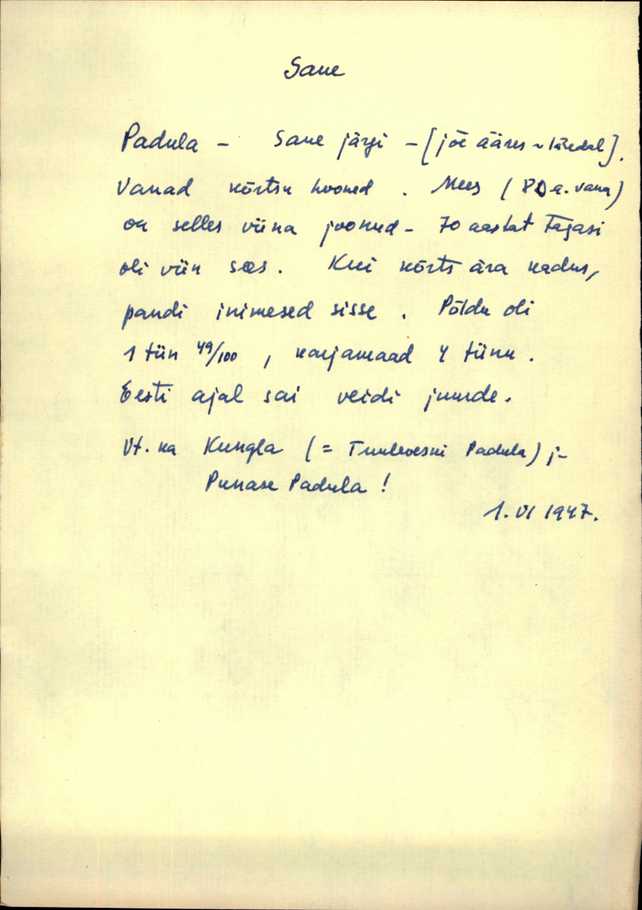 Saue
Padula – Saue järgi – [jõe ääres ~ lähedal].
Vanad kõrtsu hooned. Mees (80 a. vana)
on selles viina joonud – 70 aastat tagasi
oli viin sees. Kui kõrts ära kadus,
pandi inimesed sisse. Põldu oli
1 tiin 49/100, karjamaad 4 tiinu.
Eesti ajal sai veidi juurde.
Vt. ka Kungla (= Tuulevesni Padula) j–
Punase Padula!
1. VI 1947.